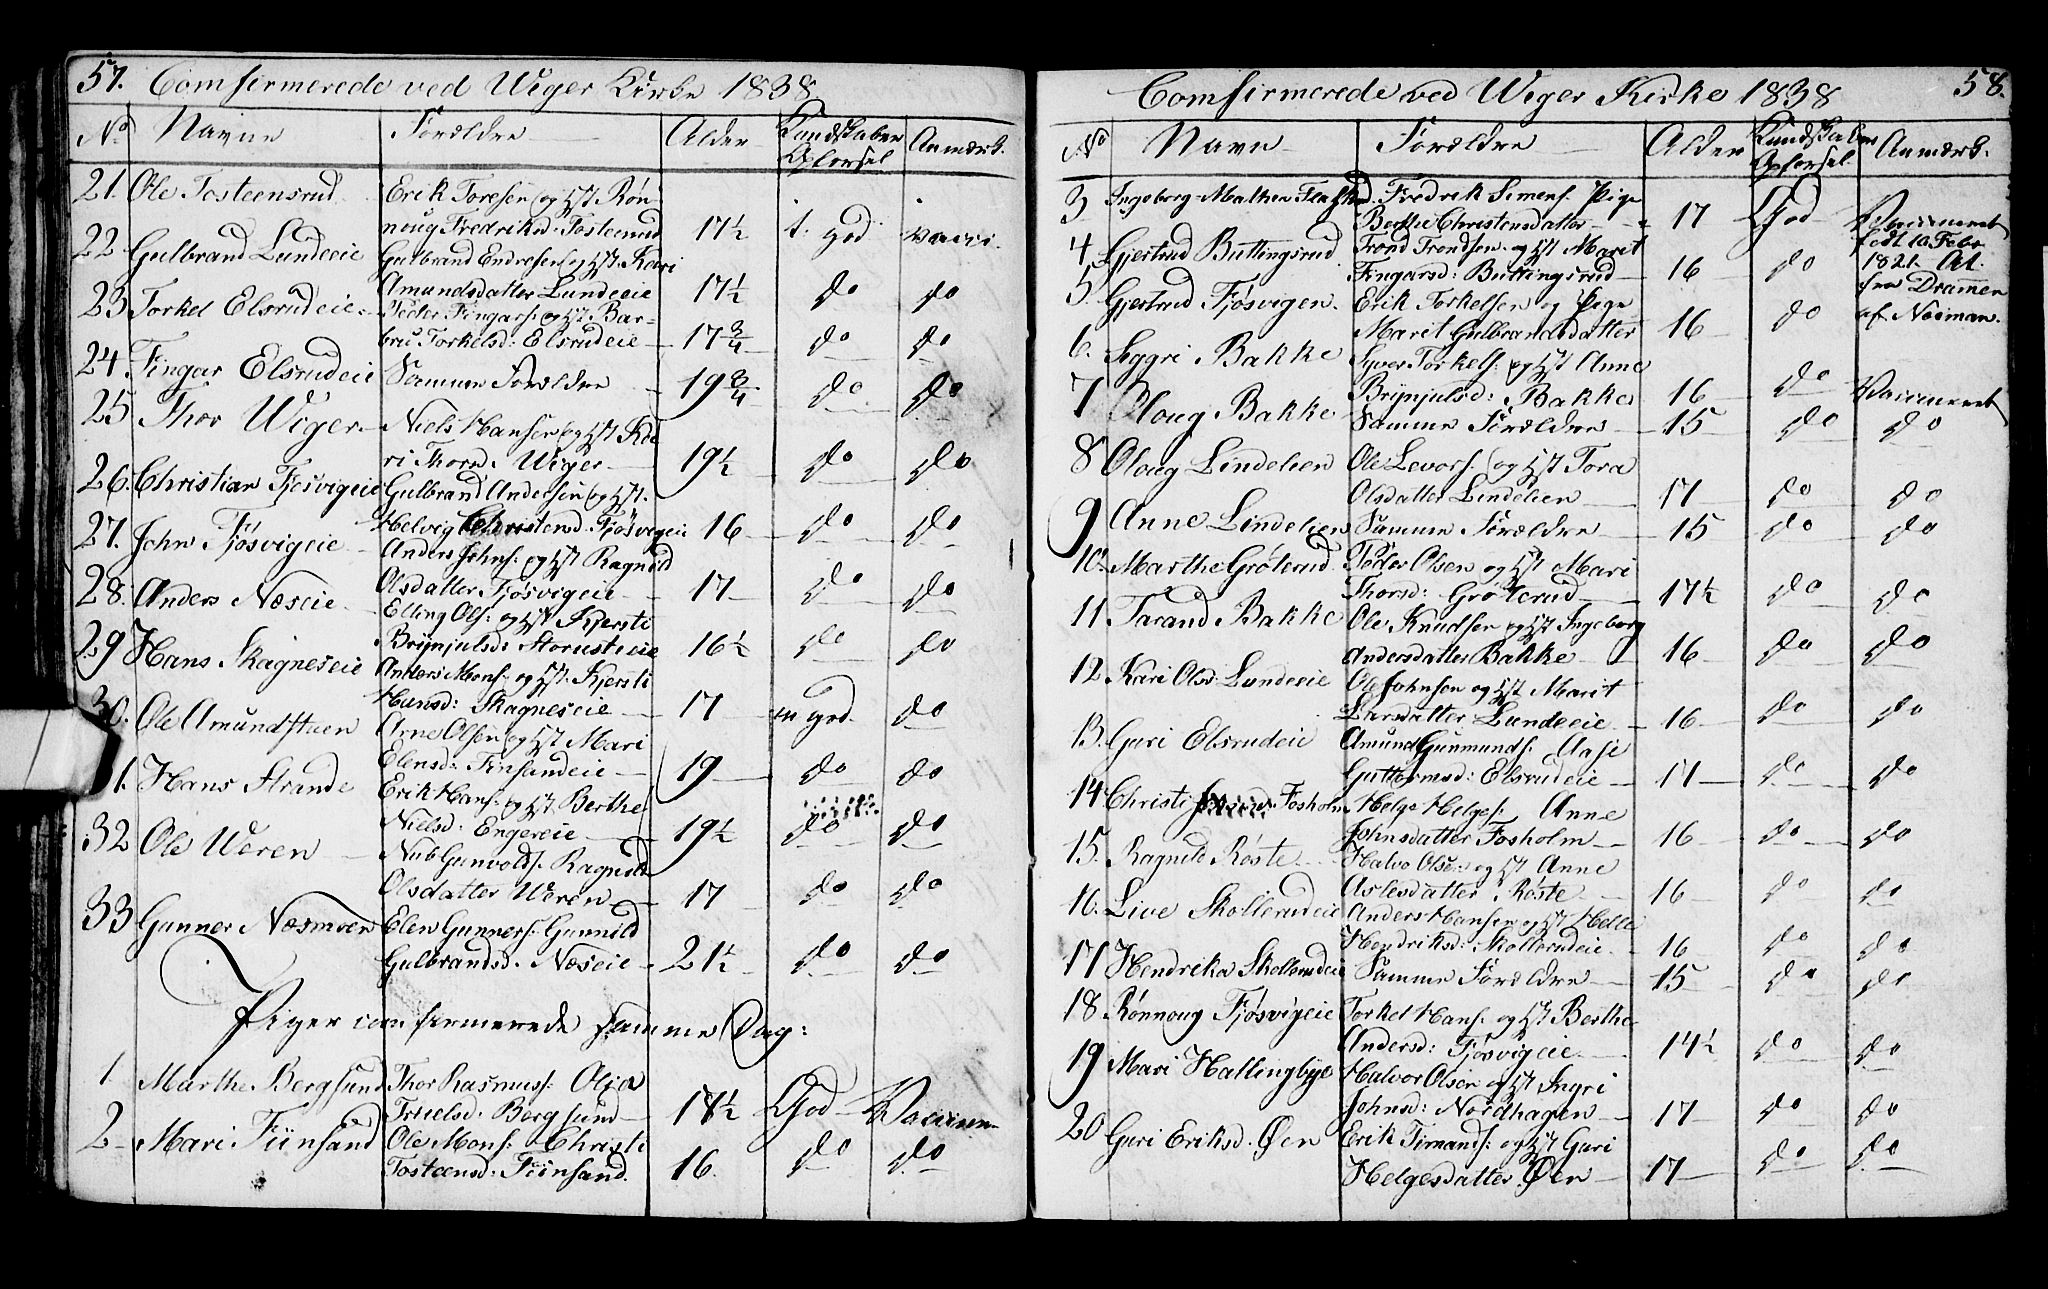 57. Comfirmerede ved Wiger Kirke 1838
No Navne Forældre Alder Kundskaber Opførsel Anmærk.
21. Ole Tosteensrud Erik Toresen og Hst Rön-
noug Fredriksd. Tosteensrud 17½ t. god. vacci.
22 Gulbrand Lundeeie Gulbrand Endresen og Hst. Kari
Amundsdatter Lundeeie 17½ do do
23 Torkel Elsrudeie Peder Fingars: og Hst Bar-
bru Torkelsd: Elsrudeie 17¾ do do
24. Fingar Elsrudeie Samme Forældre 19¾ do do
25 Thor Wiger Niels Hansen og Hst Ka-
ri Thorsd. Wiger 19½ do do
26. Christian Fjösvigeie Gulbrand Andersen og Hst.
Helvig Christensd. Fjösvigeie 16 do do
27. John Fjösvigeie Anders Johns: og Hst Ragnild
Olsdatter Fjösvigeie 17 do do
28. Anders Næseie Elling Ols: og Hst Kjersti
Brynjulsd: Storusteeie 16½ do do
29 Hans Skagneseie Anders Mons: og Hst. Kjersti
Hansd: Skagneseie 17 m god. do
30. Ole Amundstuen Arne Olsen og Hst Mari
Elensd: Finsandeie 19 do do
31. Hans Strande Erik Hans: og Hst Berthe
Nielsd: Engereie 19½ do do
32 Ole Weren Nub Gunvolds: Ragnild
Olsdatter Weren 17 do do
33 Gunner Næsmoen Elen Gunners: Gunnild
Gulbrandsd. Næseie 21½ do do
Piger comfirmerede samme Dag:
1. Marthe Bergsund Thor Rasmus: Olia
Truelsd: Bergsund 18½ God Vaccinen
2 Mari Fiinsand Ole Mons: Christi
Tosteensd: Fiinsand. 16. do do
Comfirmerede ved Wiger Kirke 1838 58.
No Navn Forældre Alder Kundskaber Opførsel Anmærk.
3 Ingeborg Mathea Fredrik Simens: Pige
Berthe Christensdatter 17 God Vaccineret
födt 10 Febr
1821. At.
fra Dramen
af Næsman.
4. Gjertrud Buttingsrud Trond Trondsen og Hst Marit
Fingarsd: Buttingsrud 16 do
5. Gjertrud Fjösvigen. Erik Torkelsen og Pige
Marit Gulbrandsdatter 16 do
6. Siggri Bakke Syver Torkels: og Hst Anne
Brynjulsd: Bakke 16 do Vaccineret
7 Oloug Bakke Samme Forældre 15 do do
8 Oloug Lindelien Ole Levors: og Hst Tora
Olsdatter Lindelien 17 do do
9 Anne Lindelien Samme Forældre 15 do do
10. Marthe Gröterud Peder Olsen og Hst Mari
Thorsd: Gröterud 17½ do do
11 Tarand Bakke Ole Knudsen og Hst Ingeborg
Andersdatter Bakke 16 do do
12. Kari Olsd. Lundeeie Ole Johnsen og Hst Marit
Larsdatter Lundeeie 16 do do
13. Guri Elsrudeie Amund Gunmunds: Aase
Guttormsd: Elsrudeie 17 do do
14 Christi Fosholm Helge Helges: Anne
Johnsdatter Fosholm 16 do do
15. Ragnild Röste Halvo Olse: og Hst Anne
Aslesdatter Röste 16 do do
16. Live Skollerudeie Anders Hansen og Hst Helle
Hendriksd: Skollerudeie 16 do do
17 Hendrika Skollerudeie Samme Forældre 15 do do
18 Rönnoug Fjösvigeie Torkel Hans: og Hst Berthe
Andersd: Fjösvigeie 14½ do do
19 Mari Hallingbye Halvor Olsen og Hst Ingri
Johnsd: Nordhagen 17 do do
20 Guri Eriksd. Øen Erik Timands: og Hst Guri
Helgesdatter Øen 17 do do